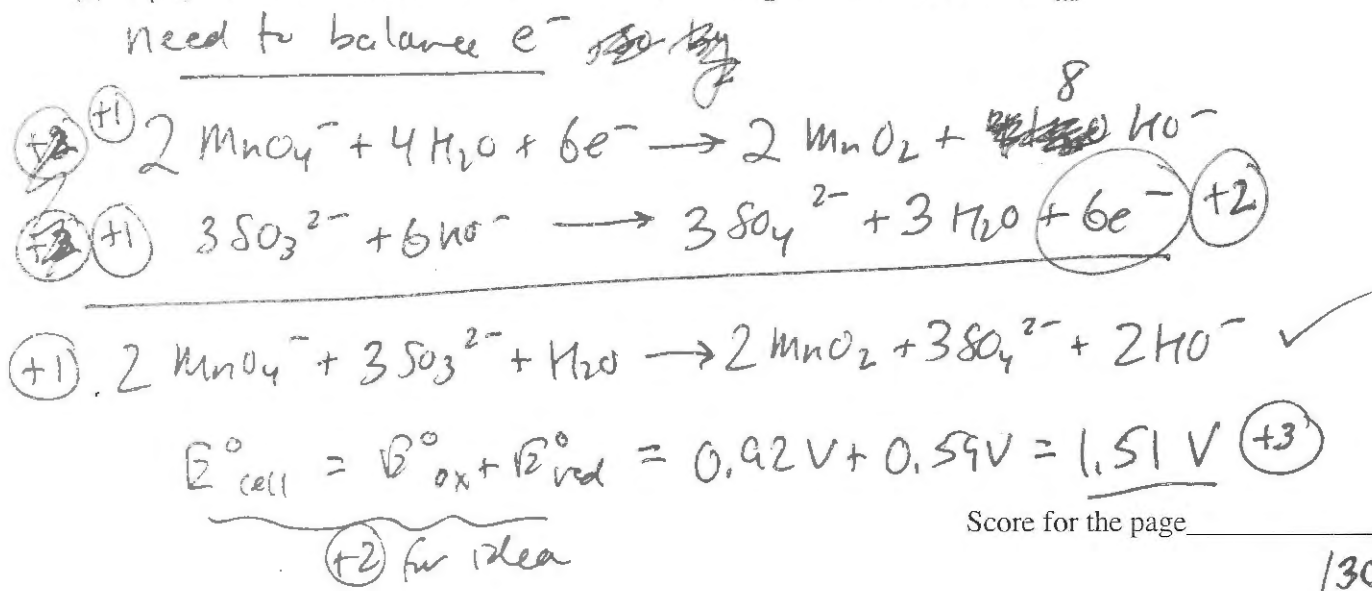 need to balance e⁻
+1 2 MnO₄⁻ + 4 H₂O + 6e⁻ → 2 MnO₂ + 8 HO⁻
+1 3 SO₃²⁻ + 6 HO⁻ → 3 SO₄²⁻ + 3 H₂O + 6e⁻ +2
+1. 2 MnO₄⁻ + 3 SO₃²⁻ + H₂O → 2 MnO₂ + 3 SO₄²⁻ + 2 HO⁻ ✓
E°cell = E°ox + E°red = 0.92 V + 0.59 V = 1.51 V +3
+2 for idea
Score for the page
/30